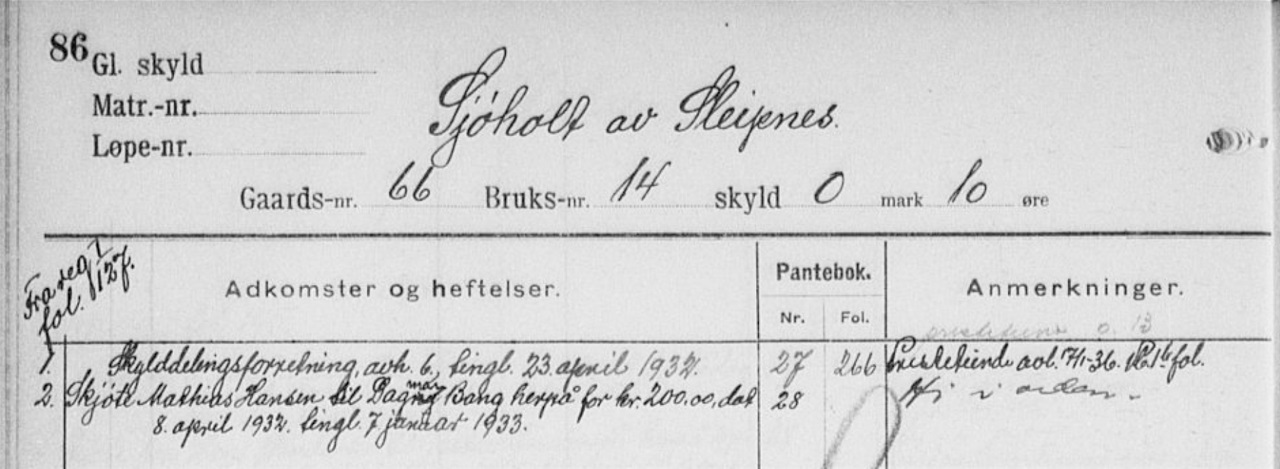 86
Gl. skyld
Matr.-nr.
Løpe-nr.
Sjøholt av Sleipnes.
Gaards-nr. 66 Bruks-nr. 14 skyld 0 mark 10 øre
Fra reg 1
fol. 127.
Adkomster og heftelser.
Pantebok.
Nr. Fol.
Anmerkninger.
1. Skylddelingsforretning, avh. 6., tingl. 23. april 1932. 27 266
2. Skjöte Mathias Hansen til Dagmar Bang herpå for kr. 200.00, dat 28
8. april 1932. tingl. 7 januar 1933.
7/1-36. fol.
i orden.